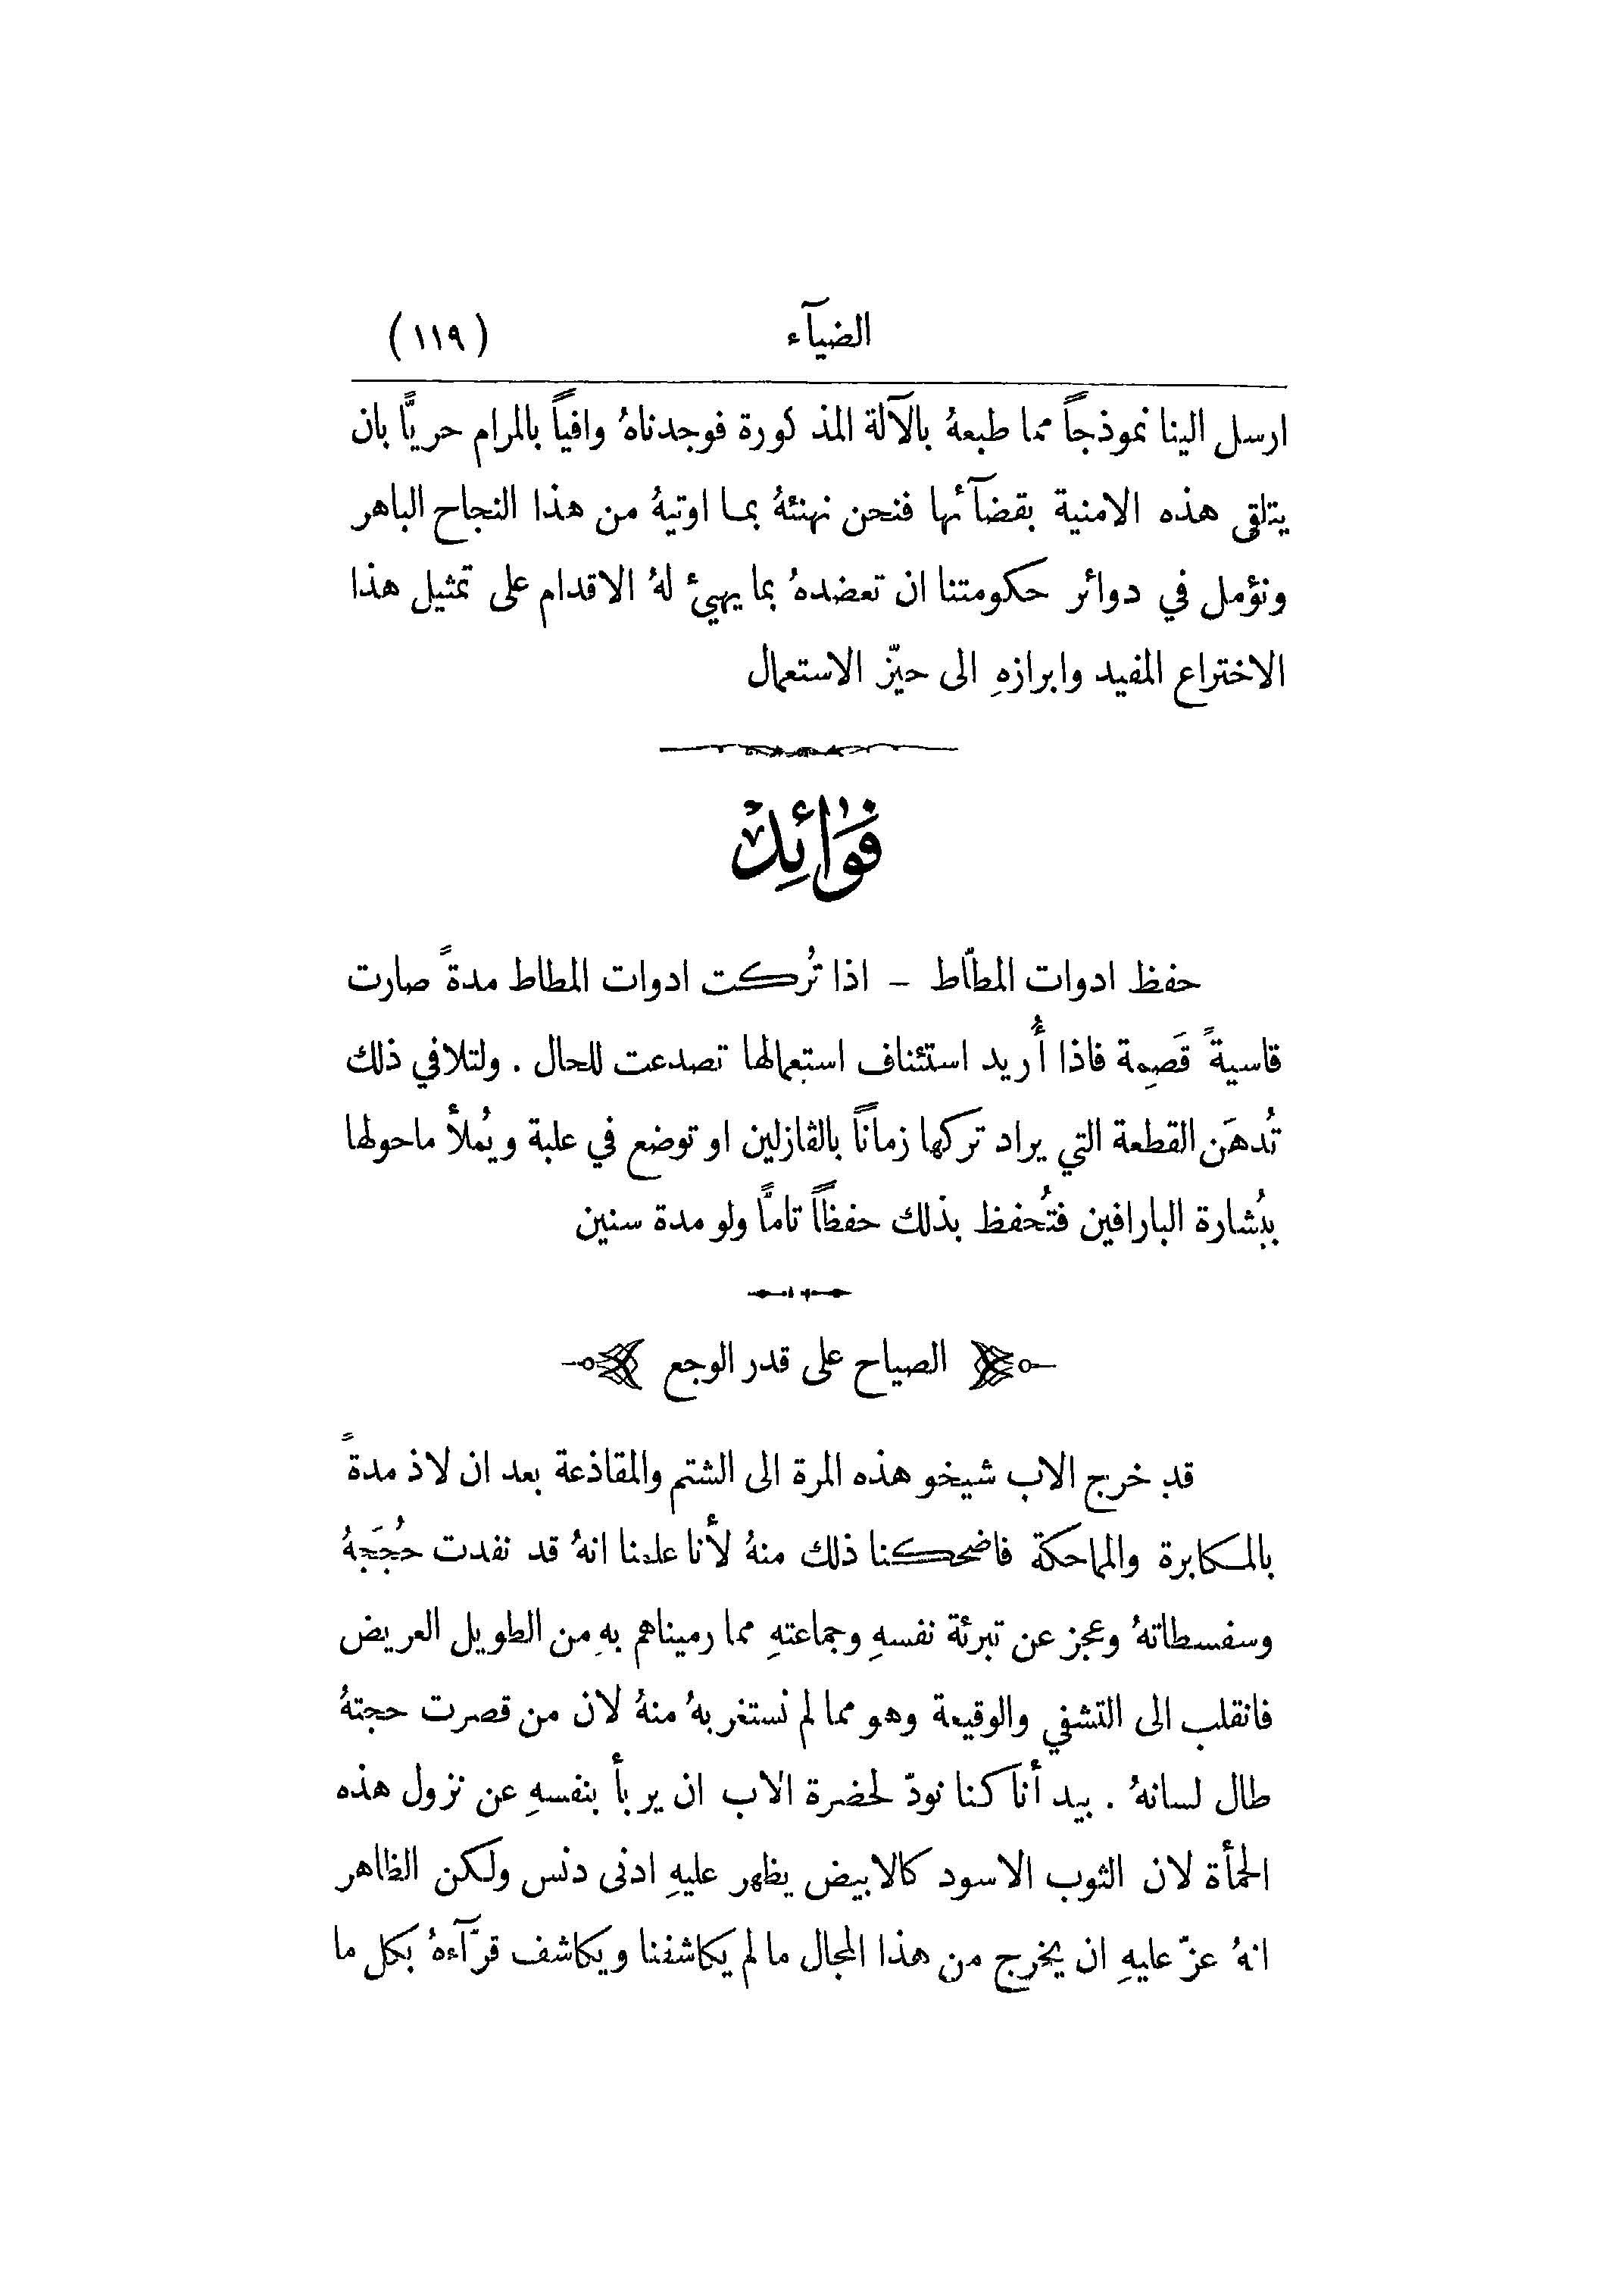 الضيآء
(١١٩)
ارسل الينا نموذجاً مما طبعهُ بالآلة المذكورة فوجدناهُ وافياً بالمرام حريًّا بان
يتلقى هذه الامنية بقضآئها فنحن نهنئهُ بما اوتيهُ من هذا النجاح الباهر
ونؤمل في دوائر حكومتنا ان تعضدهُ بما يهيئ لهُ الاقدام على تمثيل هذا
الاختراع المفيد وابرازهِ الى حيّز الاستعمال
فَوَائِد
حفظ ادوات المطّاط – اذا تُركت ادوات المطاط مدةً صارت
قاسيةً قَصِمة فاذا أُريد استئناف استعمالها تصدعت للحال . ولتلافي ذلك
تُدهَن القطعة التي يراد تركها زماناً بالڤازلين او توضع في علبة ويُملأ ماحولها
ببُشارة البارافين فتُحفظ بذلك حفظاً تامًّا ولو مدة سنين
الصياح على قدر الوجع
قد خرج الاب شيخو هذه المرة الى الشتم والمقاذعة بعد ان لاذ مدةً
بالمكابرة والماحكة فاضحكنا ذلك منهُ لأنا علمنا انهُ قد نفدت حُجَجهُ
وسفسطاتهُ وعجز عن تبرئة نفسهِ وجماعتهِ مما رميناهم بهِ من الطويل العريض
فانقلب الى التشفي والوقيعة وهو مما لم نستغربهُ منهُ لان من قصرت حجتهُ
طال لسانهُ . بيد أنا كنا نودّ لحضرة الاب ان يربأ بنفسهِ عن نزول هذه
الحمأة لان الثوب الاسود كالابيض يظهر عليهِ ادنى دنس ولكن الظاهر
انهُ عزّ عليهِ ان يخرج من هذا المجال ما لم يكاشفنا ويكاشف قرّآءهُ بكل ما